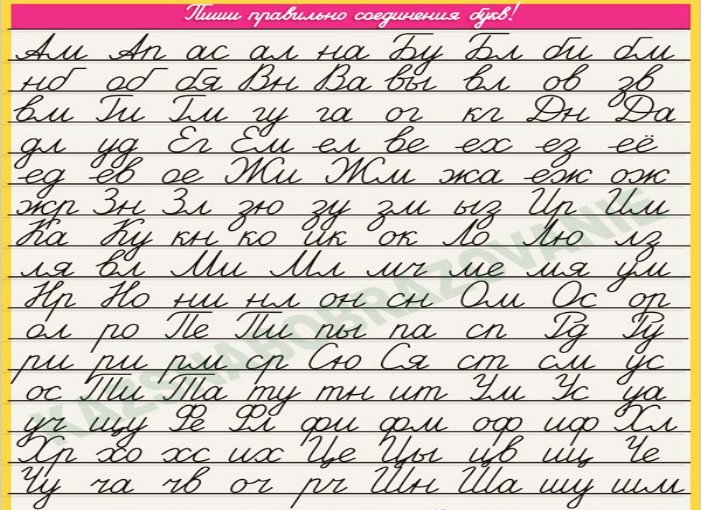 Пиши правильно соединения букв!
Ам Ап ас ал на Бу Бл би бм
нб об бя Вн Ва вы вл ов зв
вм Ги Гм гу га ог кг Дн Да
дл уд Ег Ем ел ве ех ез её
ед ев ое Жи Жм жа еж ож
жр Зн Зл зю зу зм ыз Ир Им
Ка Ку кн ко ик ок Ло Лю лз
ля вл Ми Мл мч ме мя ум
Нр Но ни нл он сн Ом Ос ор
ол ро Пе Пи пы па сп Рд Ру
ри ри рм ср Сю Ся ст см ус
ос Ти Та ту тн ит Ум Ус уа
уч щу Фе Фл фи фм оф иф Хл
Хр хо хс их Це Цы цв иц Че
Чу ча чв оч рч Шн Ша шу шм
KAZSNABOBRAZOVANIE